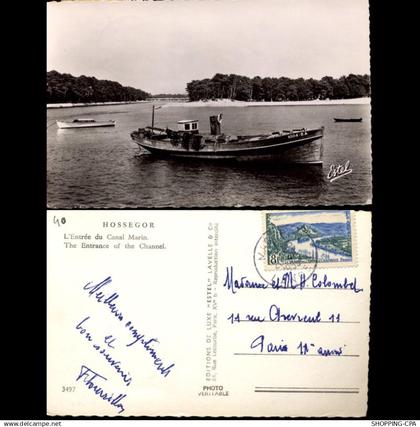 Estel
40
HOSSEGOR
L'Entrée du Canal Marin.
The Entrance of the Channel.
Meilleurs compliments
et
bon souvenir
3497
EDITIONS DE LUXE "ESTEL" LAVELLE & Cie
Rue Lecourbe, Paris, XVe - Reproduction interdite
PHOTO
VERITABLE
Madame et M. H. Colombel
11 rue Chevreul 11
Paris
SHOPPING-CPA